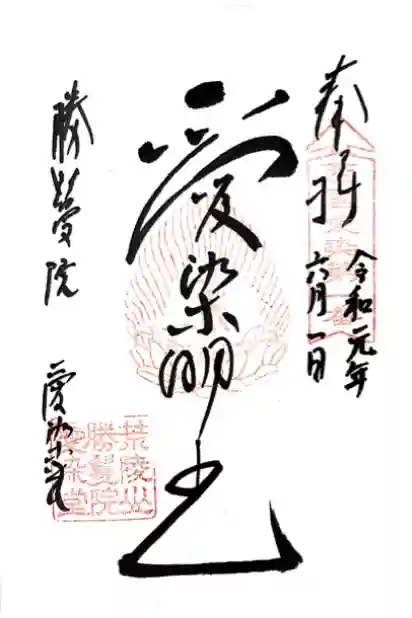 奉拝
令和元年
六月一日
愛染明王
勝鬘院
愛染堂
荒陵山
勝鬘院
愛染堂